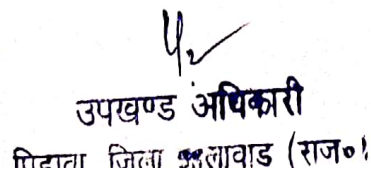 उपखण्ड अधिकारी
पिडावा जिला झालावाड (राज०)